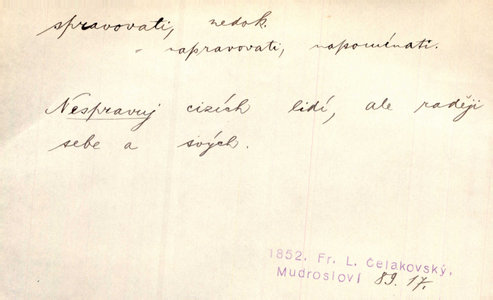 spravovati, nedok.
- napravovati, napomínati.
Nespravuj cizích lidí, ale raději
sebe a svých.
1852. Fr. L. Čelakovský,
Mudrosloví 89.17.